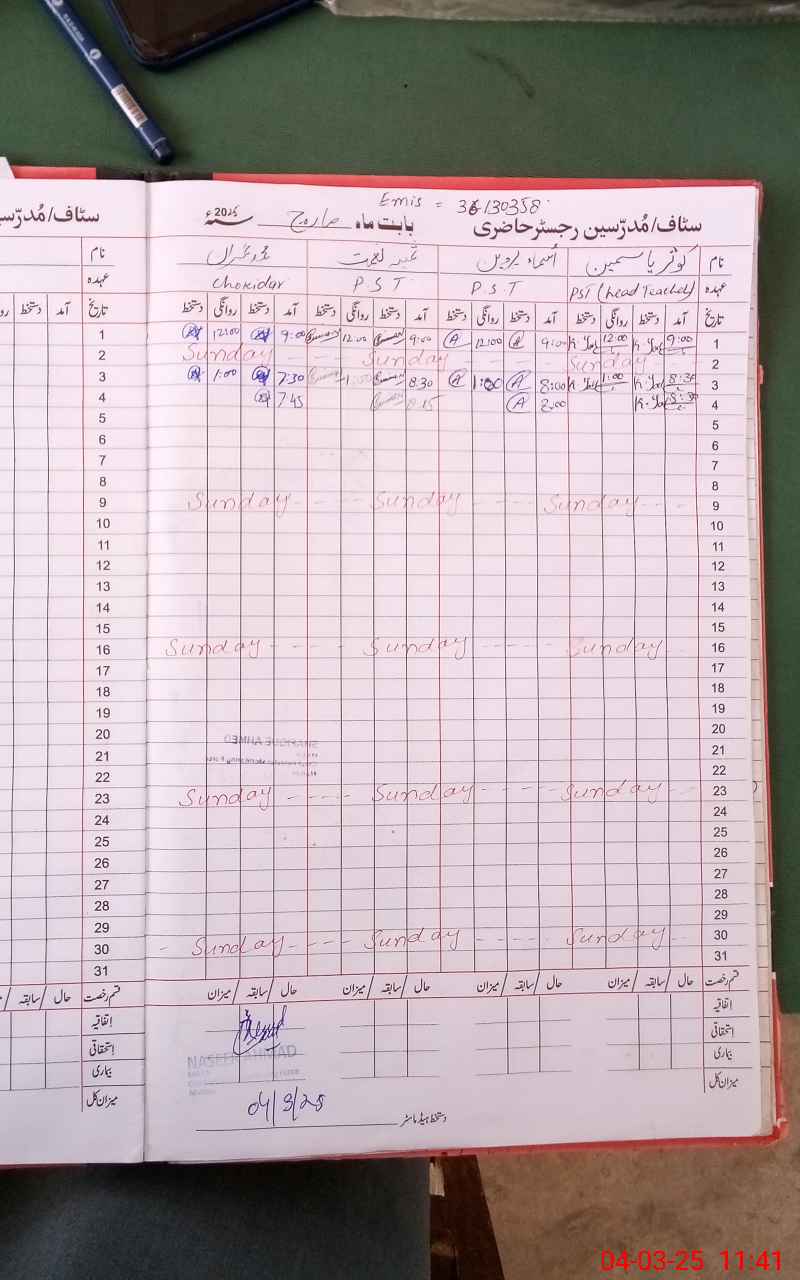 Emis = 36130358
سٹاف/مُدرّسین رجسٹر حاضری بابت ماہ مارچ سنہ 2025ء
سٹاف/مُدرّسین
نام کوثر یاسمین اسماء پروین
نام
عہدہ PST (head Teacher) P.S.T P.S.T Chokidar
عہدہ
تاریخ آمد دستخط روانگی دستخط آمد دستخط روانگی دستخط آمد دستخط روانگی دستخط آمد دستخط روانگی دستخط
تاریخ آمد دستخط
1 12:00 9:00 12:00 9:00 12:00 9:00 12:00 9:00 1
2 Sunday - - - - Sunday - - - - Sunday 2
3 1:00 7:30 1:00 8:30 1:00 8:00 1:00 8:30 3
4 7:45 8:15 8:30 4
5 5
6 6
7 7
8 8
9 Sunday - - - - Sunday - - - - Sunday - - - 9
10 10
11 11
12 12
13 13
14 14
15 15
16 Sunday - - - - Sunday - - - - - Sunday 16
17 17
18 18
19 19
20 20
21 21
22 22
23 Sunday - - - - Sunday - - - - - Sunday - - 23
24 24
25 25
26 26
27 27
28 28
29 29
30 - Sunday - - - - Sunday - - - - - Sunday - - 30
31 31
قسم رخصت حال / سابقہ / میزان حال / سابقہ / میزان حال / سابقہ / میزان حال / سابقہ / میزان
قسم رخصت حال / سابقہ /
اتفاقیہ
اتفاقیہ
استحقاقی
استحقاقی
بیماری
بیماری
میزان کل
میزان کل
NASEER AHMAD
04/3/25
دستخط ہیڈ ماسٹر
04-03-25 11:41